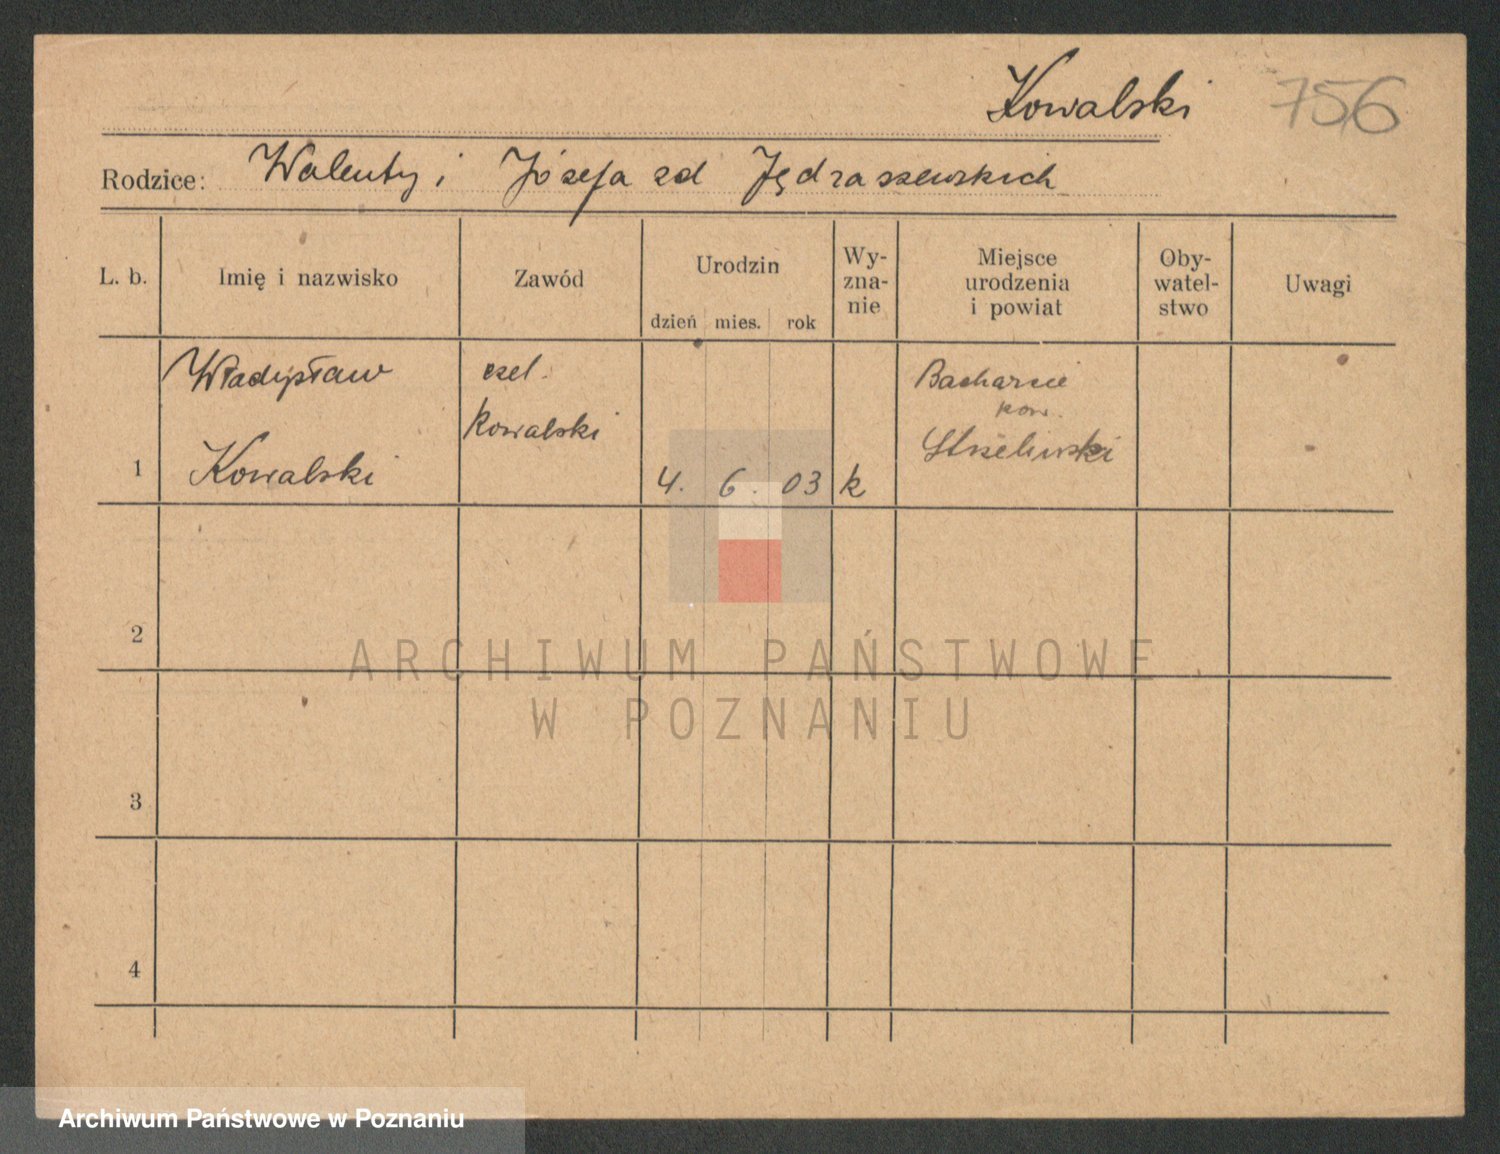 Kowalski 756
Rodzice: Walenty i Józefa zd Jędraszewskich
L. b. Imię i nazwisko Zawód Urodzin dzień mies. rok Wy-zna-nie Miejsce urodzenia i powiat Oby-watel-stwo Uwagi
Władysław czel. Bacharcie
pow.
kowalski Strzeliński
1 Kowalski 4. 6. 03 k
2
ARCHIWUM PAŃSTWOWE
W POZNANIU
3
4
Archiwum Państwowe w Poznaniu